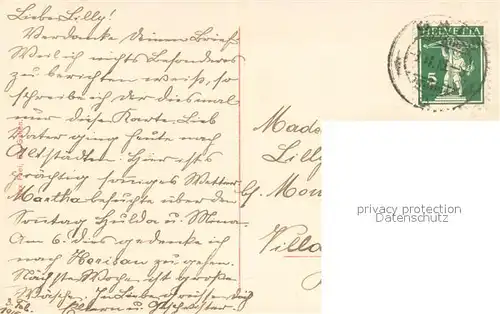 Liebe Lilly!
Verdanke Deinen Brief.
Weil ich nichts Besonderes
zu berichten weiss, so
schreibe ich Dir diesmal
nur diese Karte. Lieb
Vater ging heute nach
Altstädten. Hier ist's
prächtig sonniges Wetter.
Martha besuchte über den
Sonntag Hulda u.
Am 6. dies gedenke ich
nach Herisau zu gehen.
Nächste Woche ist grosse
Wäsche. In Liebe grüssen Dich
Eltern u. Geschwister.
HELVETIA
5
Made
Lilly
Mon
Villa
privacy protection
Datenschutz